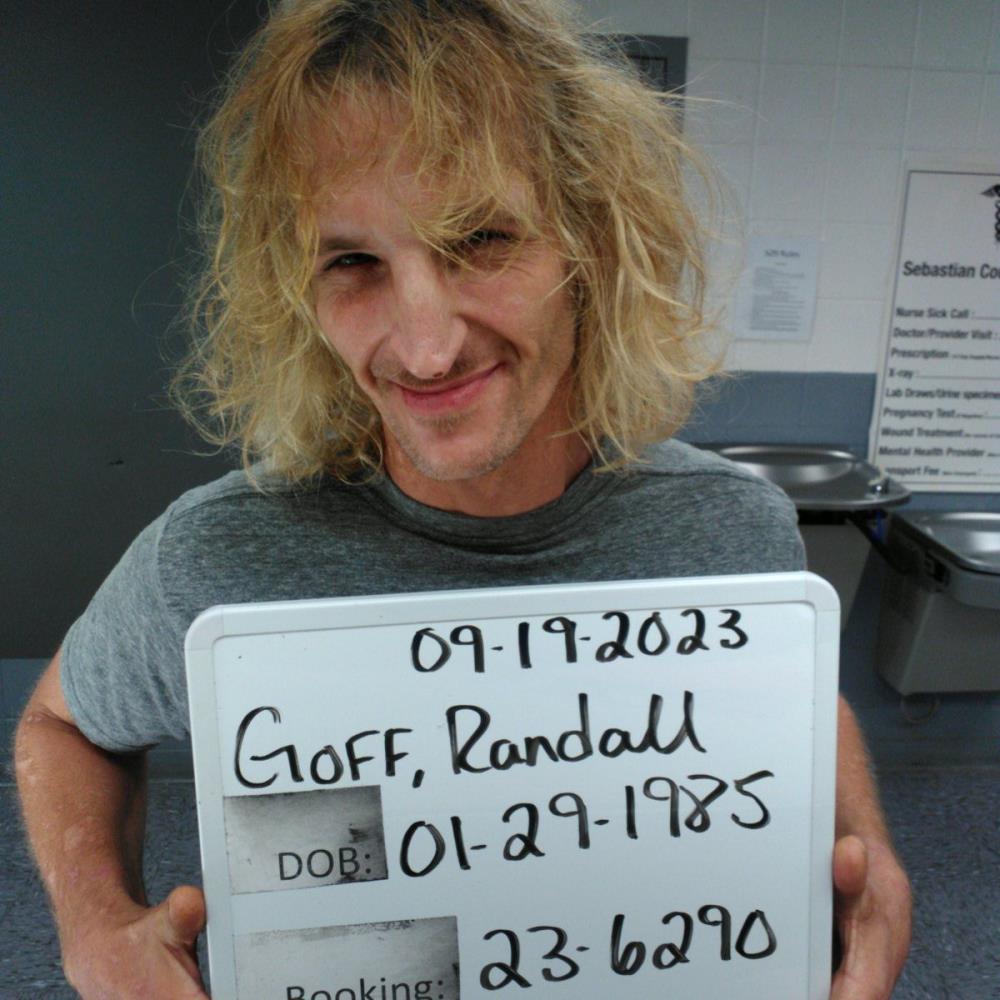 Sebastian Co
Nurse Sick Call :
Doctor/Provider Visit :
Prescription
X-ray :
Lab Draws/Urine specime
Pregnancy Test
Wound Treatment
Mental Health Provider
nsport Fee
09-19-2023
GOFF, Randall
DOB: 01-29-1985
Booking: 23-6290